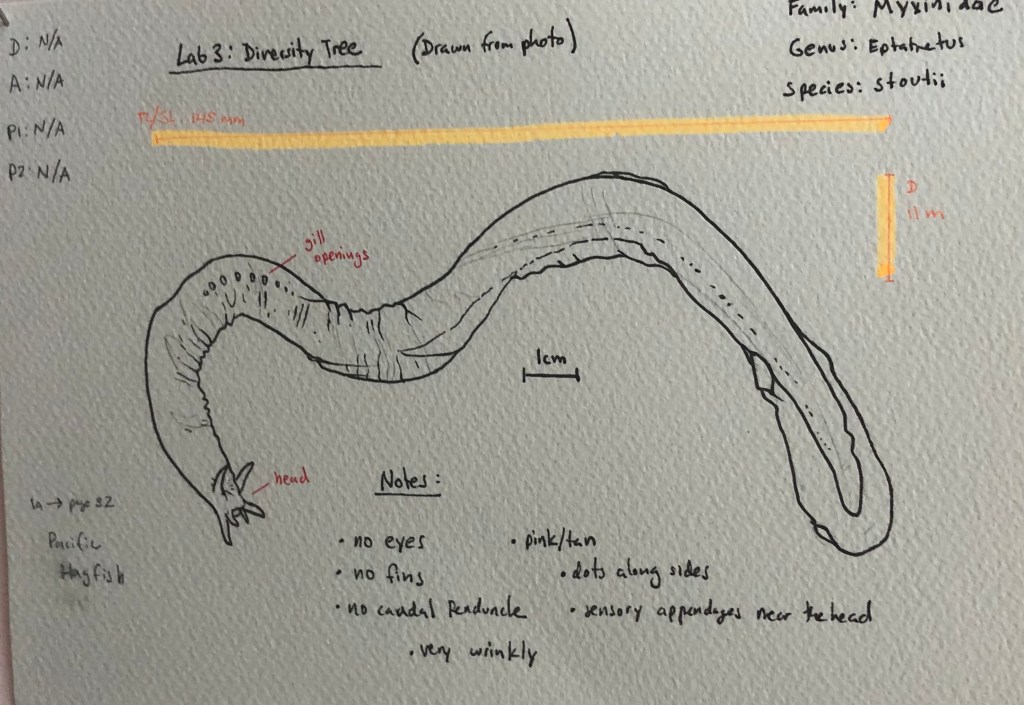 D: N/A
A: N/A
P1: N/A
P2: N/A
Lab 3: Diversity Tree (Drawn from photo)
Family: Myxinidae
Genus: Eptatretus
Species: stoutii
TL/SL: 145 mm
D
11 m
gill
openings
1cm
head
1a → page 32
Pacific
Hagfish
Notes:
• no eyes
• no fins
• no caudal Peduncle
• very wrinkly
• pink/tan
• dots along sides
• sensory appendages near the head